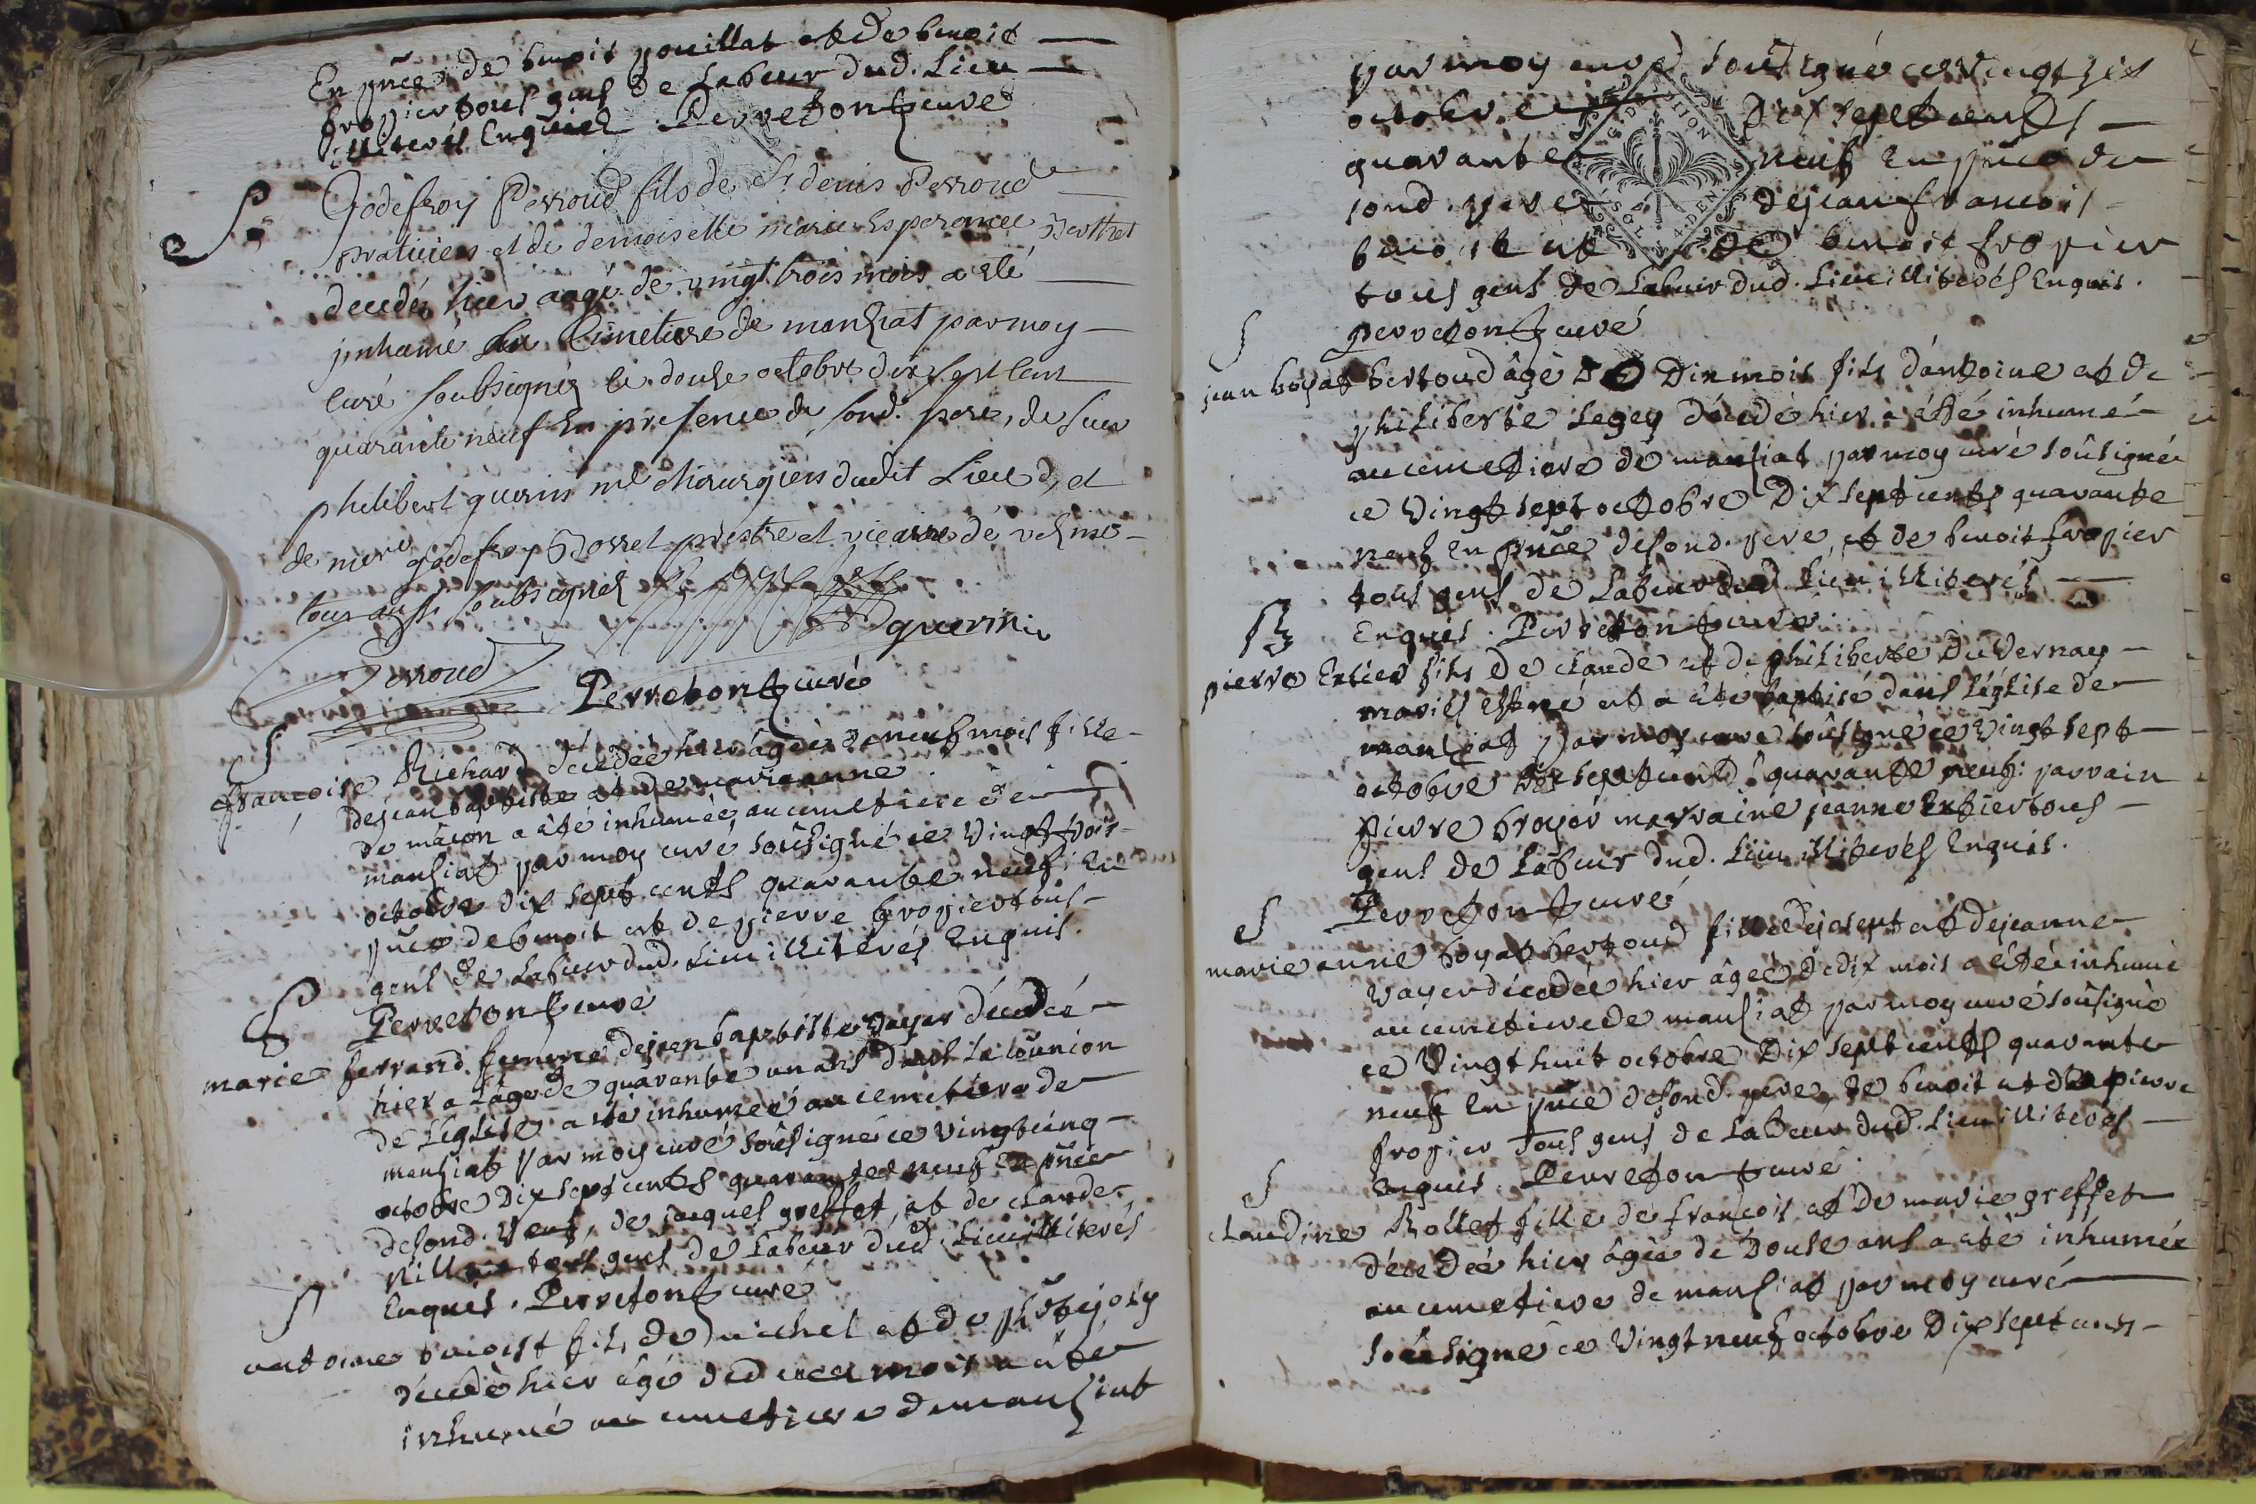 En pn̄ce de benoit pouillat et de benoit
fropier tous gens de Labeur dud. Lieu
illiterés Enquis Perreton curé
Godefroy Perroud fils de Sr denis Perroud
praticien et de demoiselle marie Esperance Berthet
decedéz hier aagé de vingt trois mois a eté
jnhumé au Cimetiere de manziat par moy
curé soubsignéz le douse octobre dix sept cent
quarante neuf En presence de sond. pere, de sieur
philibert guerin me chirurgien dudit Lieu, et
de mere godefroy Borrel prestre et vicaire de
tous aussi soubsignéz
guerin
Perroud
Perreton curé
francoise Richard décedée hier âgée de neuf mois fille
dejean baptiste et de marie anne
de mâcon a été inhumée au cemetiere de
manziat par moy curé soûsigné ce vingt trois
octobre dix sept cents quarante neuf En
pn̄ce de benoit et de pierre fropier tous
gens de Labeur dud. Lieu illiterés Enquis.
Perreton curé
marie ferrand femme dejean baptiste Vayer décedée
hier a Lâge de quarante un ans dans La cõunion
de L'église a été inhumée au cemetiere de
manziat par moy curé soûsigné ce vingt cinq
octobre Dix sept cents quarante neuf En pn̄ce
desond. Veuf, de jacques greffet, et de claude
tous gens de Labeur dud. Lieu illiterés
Enquis. Perreton curé
antoine benoist fils de michel et de phte joly
décedé hier âgé de mois a été
inhumé au cemetiere de manziat
par moy curé soûsigné ce vingt six
octobre Dix sept cents
quarante neuf En pn̄ce de
sond. pere dejean francois
benoist et de benoit fropier
tous gens de Labeur dud. Lieu illiterés Enquis.
Perreton curé
G. D'UNITION
SOLS 4. DEN.
jean boyat bertoud âgé de Dix mois fils d'antoine et de
philiberte Legey décedé hier a été inhumé
au cemetiere de manziat par moy curé soûsigné
ce vingt sept octobre Dix sept cents quarante
neuf En pn̄ce desond. pere et de benoit fropier
tous gens de Labeur dud Lieu illiterés
Enquis. Perreton curé
pierre Entier fils de claude et de philiberte Duvernay
mariés est né et a été baptisé dans L'église de
manziat par moy curé soûsigné ce vingt sept
octobre dix sept cents quarante neuf: parrain
pierre broyer marraine jeanne Entier tous
gens de Labeur dud. Lieu illiterés Enquis.
Perreton curé
marie anne boyat bertoud fille dejoseph et dejeanne
Vayer décedée hier âgée de dix mois a été inhumé
au cemetiere de manziat par moy curé soûsigné
ce vingt huit octobre Dix sept cents quarante
neuf En pn̄ce desond. pere, de benoit et de pierre
fropier Tous gens de Labeur dud. Lieu illiterés
Enquis. Perreton curé
claudine Rollet fille de françois et de marie greffet
décedée hier âgée de Douse ans a été inhumée
au cemetiere de manziat par moy curé
soûsigné ce vingt neuf octobre Dix sept cens